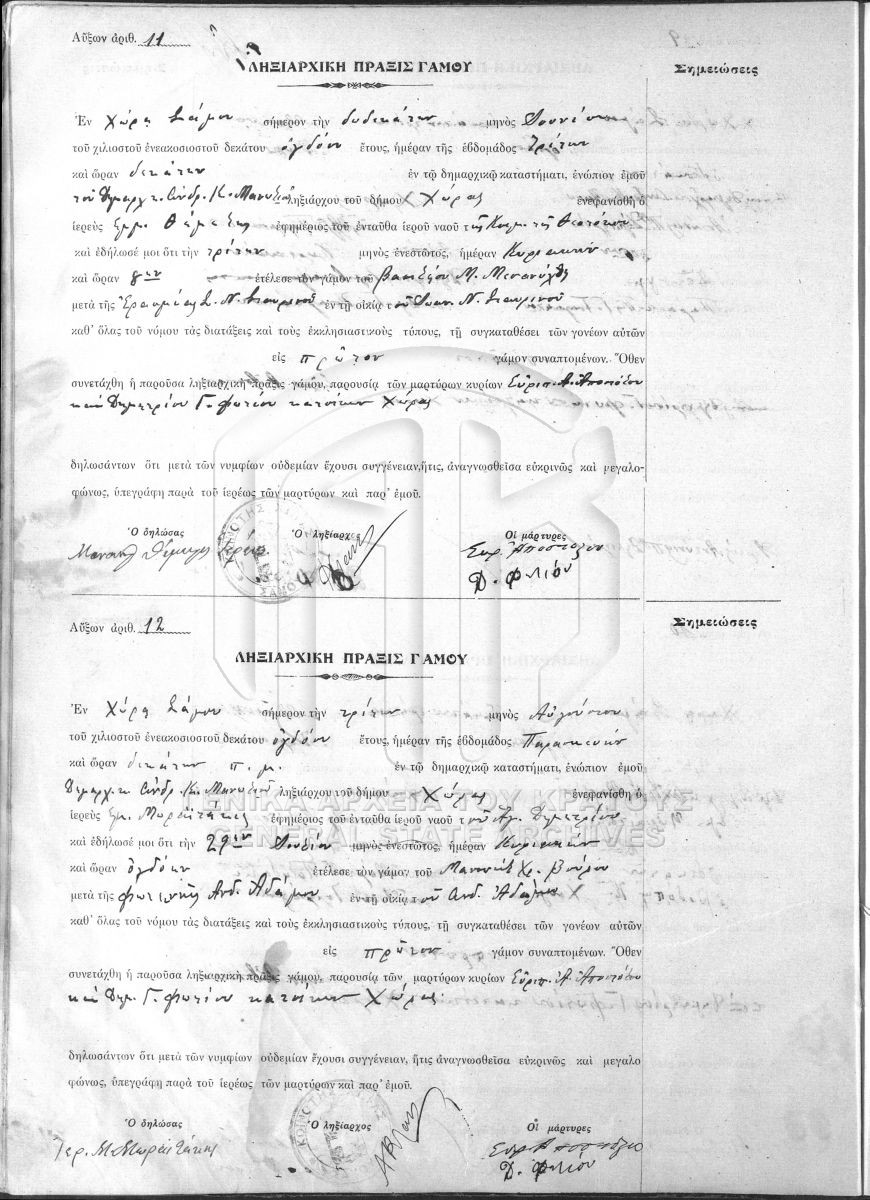 Αὔξων ἀριθ. 11
ΛΗΞΙΑΡΧΙΚΗ ΠΡΑΞΙΣ ΓΑΜΟΥ
Σημειώσεις
Ἐν Χώρᾳ Σάμου σήμερον τὴν δωδεκάτην μηνὸς Ἰουνίου
τοῦ χιλιοστοῦ ἐνεακοσιοστοῦ δεκάτου ὀγδόου ἔτους, ἡμέραν τῆς ἑβδομάδος Τρίτην
καὶ ὥραν δεκάτην ἐν τῷ δημαρχικῷ καταστήματι, ἐνώπιον ἐμοῦ
τοῦ Δημαρχ. ληξιάρχου τοῦ δήμου Χώρας ἐνεφανίσθη ὁ
ἱερεὺς Ἐμμ. Θέμελης ἐφημέριος τοῦ ἐνταῦθα ἱεροῦ ναοῦ τῆς Κοιμ. τῆς Θεοτόκου
καὶ ἐδήλωσέ μοι ὅτι τὴν τρίτην μηνὸς ἐνεστῶτος, ἡμέραν Κυριακὴν
καὶ ὥραν 8ην ἐτέλεσε τὸν γάμον τοῦ Βασιλείου Μ.
μετὰ τῆς Ἐρασμίας Σ. Ν. Σταυρινοῦ ἐν τῇ οἰκίᾳ τοῦ Ἰωαν. Ν. Σταυρινοῦ
καθ᾽ ὅλας τοῦ νόμου τὰς διατάξεις καὶ τοὺς ἐκκλησιαστικοὺς τύπους, τῇ συγκαταθέσει τῶν γονέων αὐτῶν
εἰς πρῶτον γάμον συναπτομένων. Ὅθεν
συνετάχθη ἡ παροῦσα ληξιαρχικὴ πρᾶξις γάμου, παρουσίᾳ τῶν μαρτύρων κυρίων Εὐριπ. Α. Ἀποστόλου
καὶ Δημητρίου Γ. Φωτίου κατοίκων Χώρας
δηλωσάντων ὅτι μετὰ τῶν νυμφίων οὐδεμίαν ἔχουσι συγγένειαν, ἥτις, ἀναγνωσθεῖσα εὐκρινῶς καὶ μεγαλο-
φώνως, ὑπεγράφη παρὰ τοῦ ἱερέως τῶν μαρτύρων καὶ παρ᾽ ἐμοῦ.
Ὁ δηλώσας Ὁ ληξίαρχος Οἱ μάρτυρες
Εὐρ. Ἀποστόλου
Δ. Φωτίου
Αὔξων ἀριθ. 12
Σημειώσεις
ΛΗΞΙΑΡΧΙΚΗ ΠΡΑΞΙΣ ΓΑΜΟΥ
Ἐν Χώρᾳ Σάμου σήμερον τὴν τρίτην μηνὸς Αὐγούστου
τοῦ χιλιοστοῦ ἐνεακοσιοστοῦ δεκάτου ὀγδόου ἔτους, ἡμέραν τῆς ἑβδομάδος Παρασκευὴν
καὶ ὥραν δεκάτην π.μ. ἐν τῷ δημαρχικῷ καταστήματι, ἐνώπιον ἐμοῦ
Δημαρχ. ληξιάρχου τοῦ δήμου Χώρας ἐνεφανίσθη ὁ
ἱερεὺς Ἐμ. Μωραϊτάκης ἐφημέριος τοῦ ἐνταῦθα ἱεροῦ ναοῦ τοῦ Ἁγ. Δημητρίου
καὶ ἐδήλωσέ μοι ὅτι τὴν 29ην Ἰουλίου μηνὸς ἐνεστῶτος, ἡμέραν Κυριακὴν
καὶ ὥραν ὀγδόην ἐτέλεσε τὸν γάμον τοῦ Μανουὴλ Χρ. Βούρου
μετὰ τῆς Φωτεινῆς Ἀνδ. Ἀδάμου ἐν τῇ οἰκίᾳ τοῦ Ἀνδ. Ἀδάμου
καθ᾽ ὅλας τοῦ νόμου τὰς διατάξεις καὶ τοὺς ἐκκλησιαστικοὺς τύπους, τῇ συγκαταθέσει τῶν γονέων αὐτῶν
εἰς πρῶτον γάμον συναπτομένων. Ὅθεν
συνετάχθη ἡ παροῦσα ληξιαρχικὴ πρᾶξις γάμου, παρουσίᾳ τῶν μαρτύρων κυρίων Εὐριπ. Α. Ἀποστόλου
καὶ Δημ. Γ. Φωτίου κατοίκων Χώρας.
ΓΕΝΙΚΑ ΑΡΧΕΙΑ ΤΟΥ ΚΡΑΤΟΥΣ
GENERAL STATE ARCHIVES
δηλωσάντων ὅτι μετὰ τῶν νυμφίων οὐδεμίαν ἔχουσι συγγένειαν, ἥτις ἀναγνωσθεῖσα εὐκρινῶς καὶ μεγαλο
φώνως, ὑπεγράφη παρὰ τοῦ ἱερέως τῶν μαρτύρων καὶ παρ᾽ ἐμοῦ.
Ὁ δηλώσας Ὁ ληξίαρχος Οἱ μάρτυρες
Ἱερ. Μ Μωραϊτάκης Εὐρ Ἀποστόλου
Δ. Φωτίου